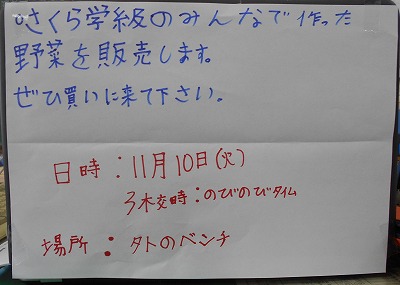 さくら学級のみんなで作った
野菜を販売します。
ぜひ買いに来て下さい。
日時：11月10日(火)
3木交時：のびのびタイム
場所：外のベンチ